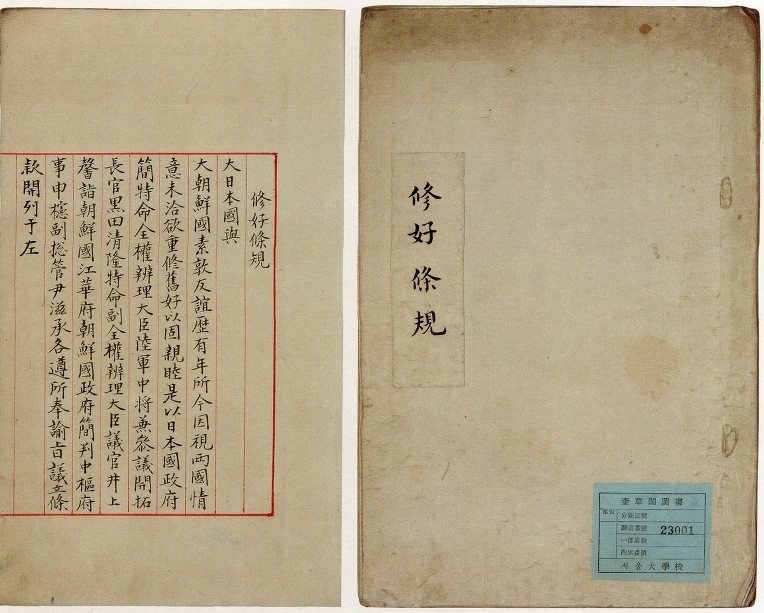 修好條規
奎章閣圖書
圖書番號 23001
서울大學校
修好條規
大日本國與
大朝鮮國素敦友誼歷有年所今因視兩國情
意未洽欲重修舊好以固親睦是以日本國政府
簡特命全權辨理大臣陸軍中將兼參議開拓
長官黑田清隆特命副全權辨理大臣議官井上
馨詣朝鮮國江華府朝鮮國政府簡判中樞府
事申櫶副捴管尹滋承各遵所奉諭旨議立條
款開列于左